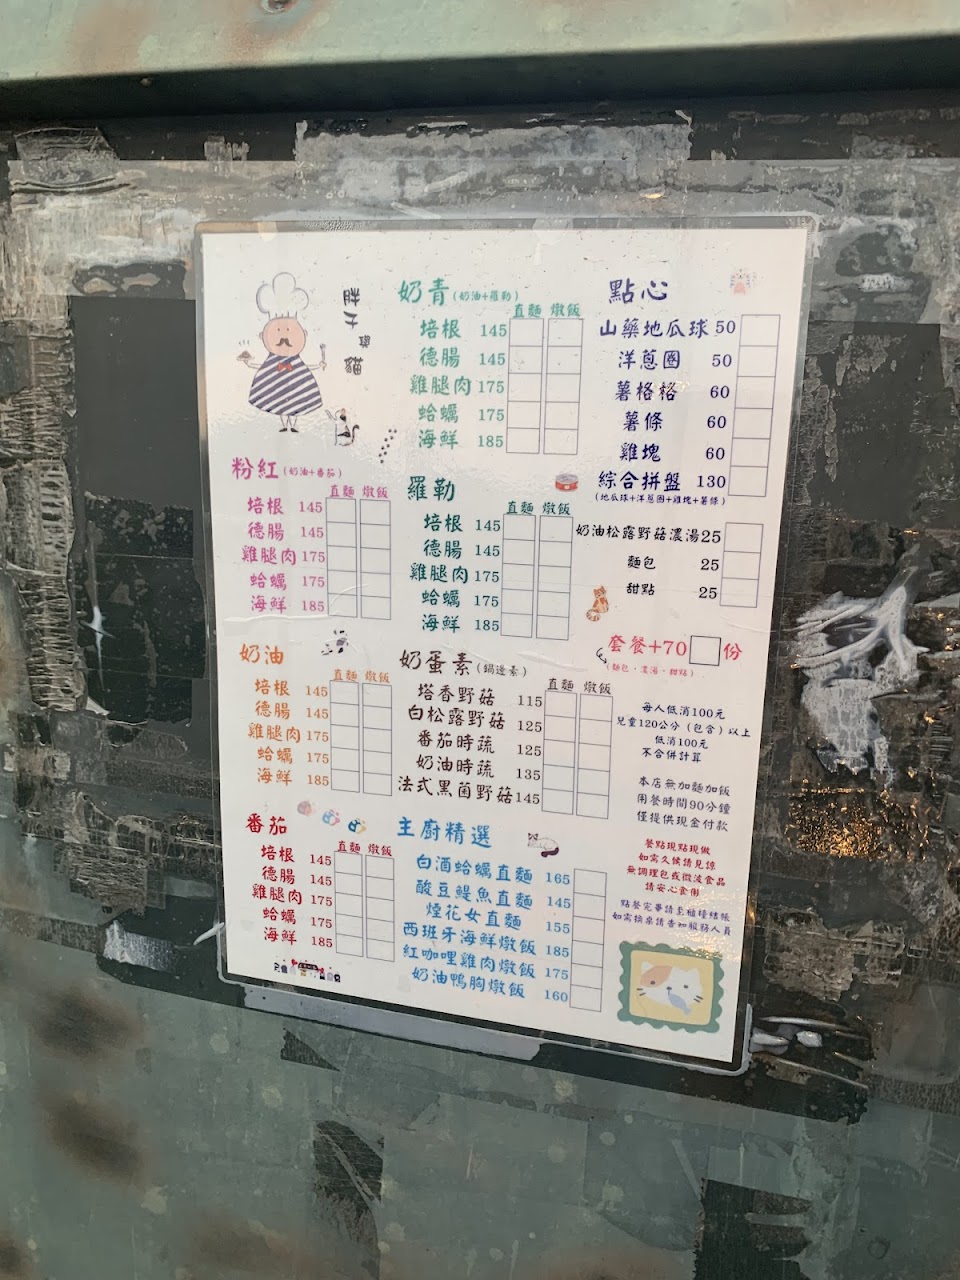 胖子與貓
奶青(奶油+羅勒)
直麵 燉飯
培根 145
德腸 145
雞腿肉 175
蛤蠣 175
海鮮 185
粉紅(奶油+番茄)
直麵 燉飯
培根 145
德腸 145
雞腿肉 175
蛤蠣 175
海鮮 185
羅勒
直麵 燉飯
培根 145
德腸 145
雞腿肉 175
蛤蠣 175
海鮮 185
奶油
直麵 燉飯
培根 145
德腸 145
雞腿肉 175
蛤蠣 175
海鮮 185
奶蛋素(鍋邊素)
直麵 燉飯
塔香野菇 115
白松露野菇 125
番茄時蔬 125
奶油時蔬 135
法式黑菌野菇 145
番茄
直麵 燉飯
培根 145
德腸 145
雞腿肉 175
蛤蠣 175
海鮮 185
主廚精選
白酒蛤蠣直麵 165
酸豆鯷魚直麵 145
煙花女直麵 155
西班牙海鮮燉飯 185
紅咖哩雞肉燉飯 175
奶油鴨胸燉飯 160
點心
山藥地瓜球 50
洋蔥圈 50
薯格格 60
薯條 60
雞塊 60
綜合拼盤 130
(地瓜球+洋蔥圈+雞塊+薯條)
奶油松露野菇濃湯 25
麵包 25
甜點 25
套餐+70 份
(麵包、濃湯、甜點)
每人低消100元
兒童120公分(包含)以上
低消100元
不合併計算
本店無加麵加飯
用餐時間90分鐘
僅提供現金付款
餐點現點現做
如需久候請見諒
無調理包或微波食品
請安心食用
點餐完畢請至櫃檯結帳
如需換桌請告知服務人員